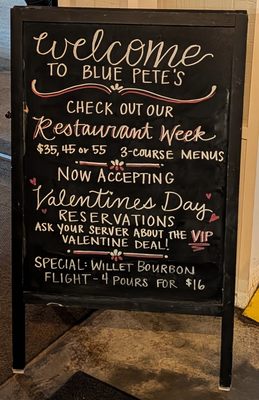 welcome
TO BLUE PETE'S
CHECK OUT OUR
Restaurant Week
$35, 45 or 55 3-COURSE MENUS
NOW ACCEPTING
Valentines Day
RESERVATIONS
ASK YOUR SERVER ABOUT THE VIP
VALENTINE DEAL!
SPECIAL: WILLET BOURBON
FLIGHT - 4 POURS FOR $16